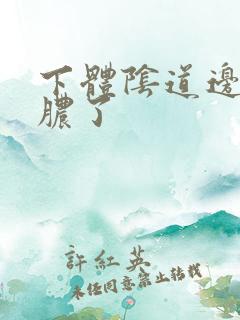 下體陰道邊
膿了
許紅英
未经同意禁止转载